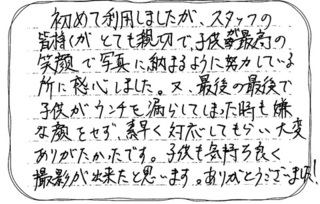 初めて利用しましたが、スタッフの
皆様がとても親切で、子供が最高の
笑顔で写真に納まるように努力している
所に感心しました。又、最後の最後で
子供がウンチを漏らしてしまった時も嫌
な顔をせず、素早く対応してもらい大変
ありがたかったです。子供も気持ち良く
撮影が出来たと思います。ありがとうございました!